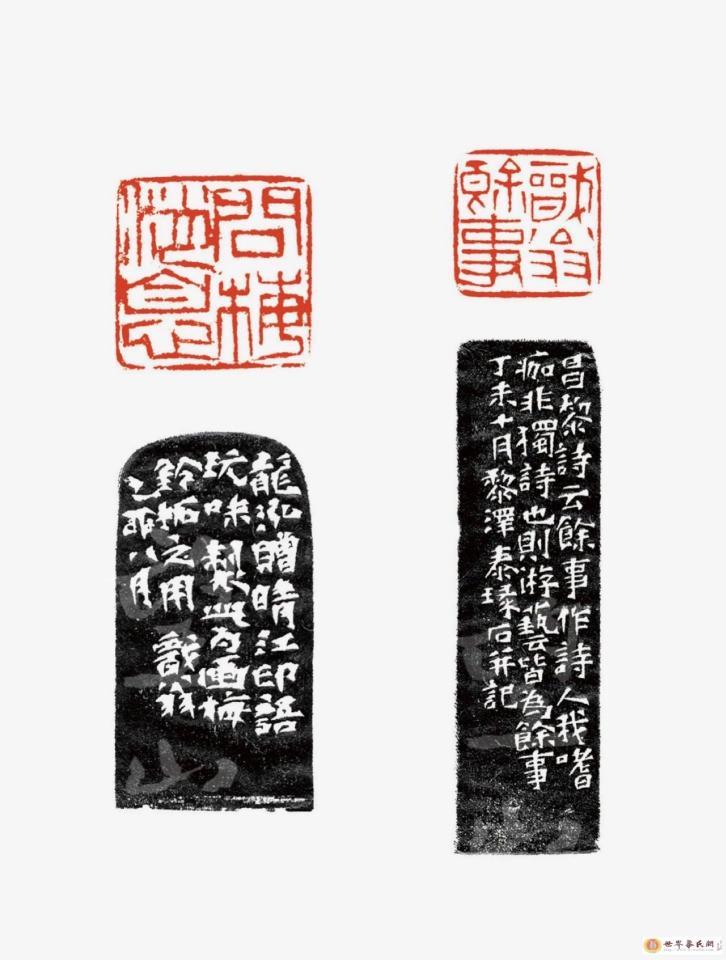 戩翁
餘事
昌黎詩云餘事作詩人我嗜
痂非獨詩也則游藝皆為餘事
丁未十月黎澤泰琢石并記
問梅
消息
龍泓贈晴江印語
玩味製此為畫梅
鈐拓之用 戩翁
乙卯八月
世界黎氏網